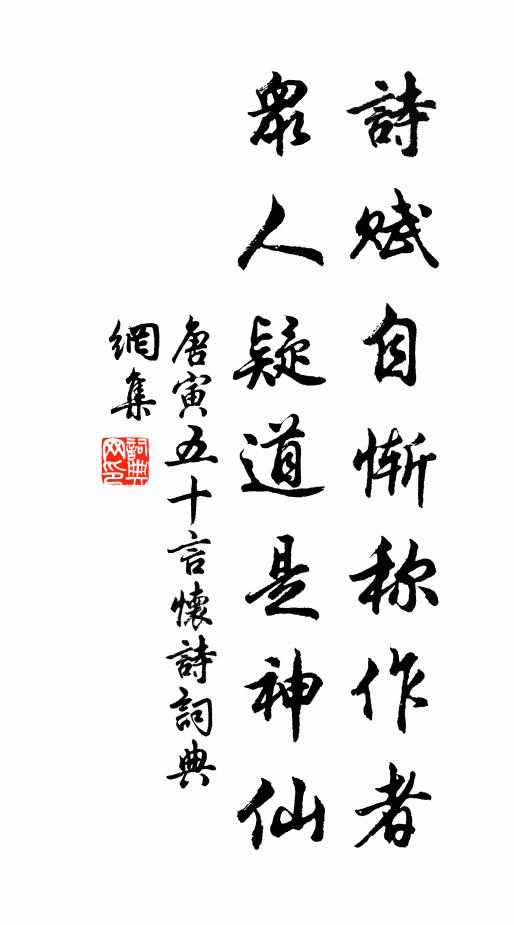 詩赋自慚称作者
眾人疑道是神仙
唐寅五十言懷詩詞典
網集
詞典
网印